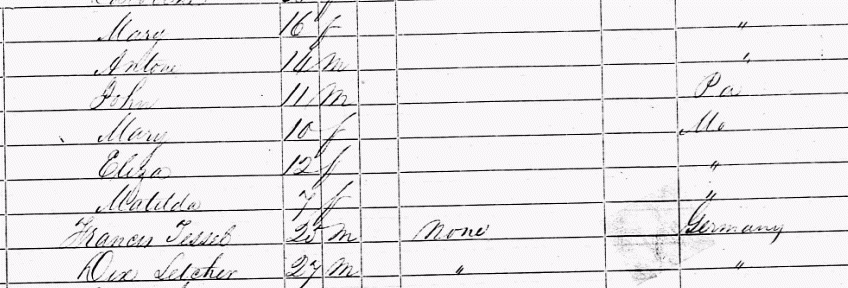 Mary 16 f "
Antone 14 m "
John 11 m Pa
Mary 10 f Mo
Eliza 12 f "
Matilda 7 f "
Francis Tessel 25 m None Germany
Letcher 27 m " "